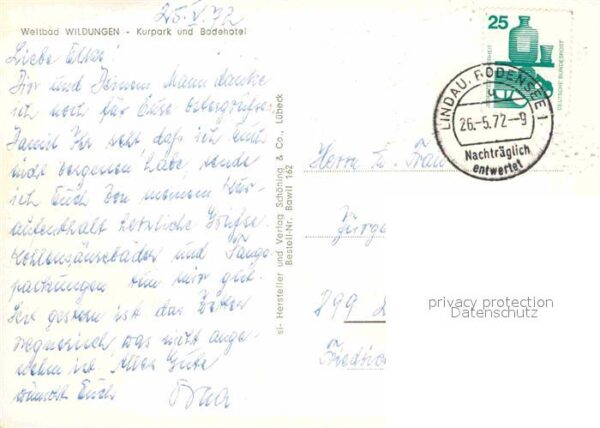 25.V.72
Weltbad WILDUNGEN - Kurpark und Badehotel
Liebe
Dir und Deinem Mann danke
ich noch für Eure Ostergrüße.
Damit Ihr seht daß ich Euch
nicht vergessen habe, sende
ich Euch von meinem Kur-
aufenthalt herzliche Grüße.
Kohlensäurebäder und Fango
packungen tun mir gut.
Seit gestern ist das Wetter
regnerisch, was nicht ange-
nehm ist. Alles Gute
wünscht Euch
si- Hersteller und Verlag Schöning & Co., Lübeck
Bestell-Nr. Bawil 162
25
DEUTSCHE BUNDESPOST
LINDAU, BODENSEE 1
26.-5.72.-9
Nachträglich
entwertet
Herrn u. Frau
Jürge
privacy protection
Datenschutz
299
Friedric